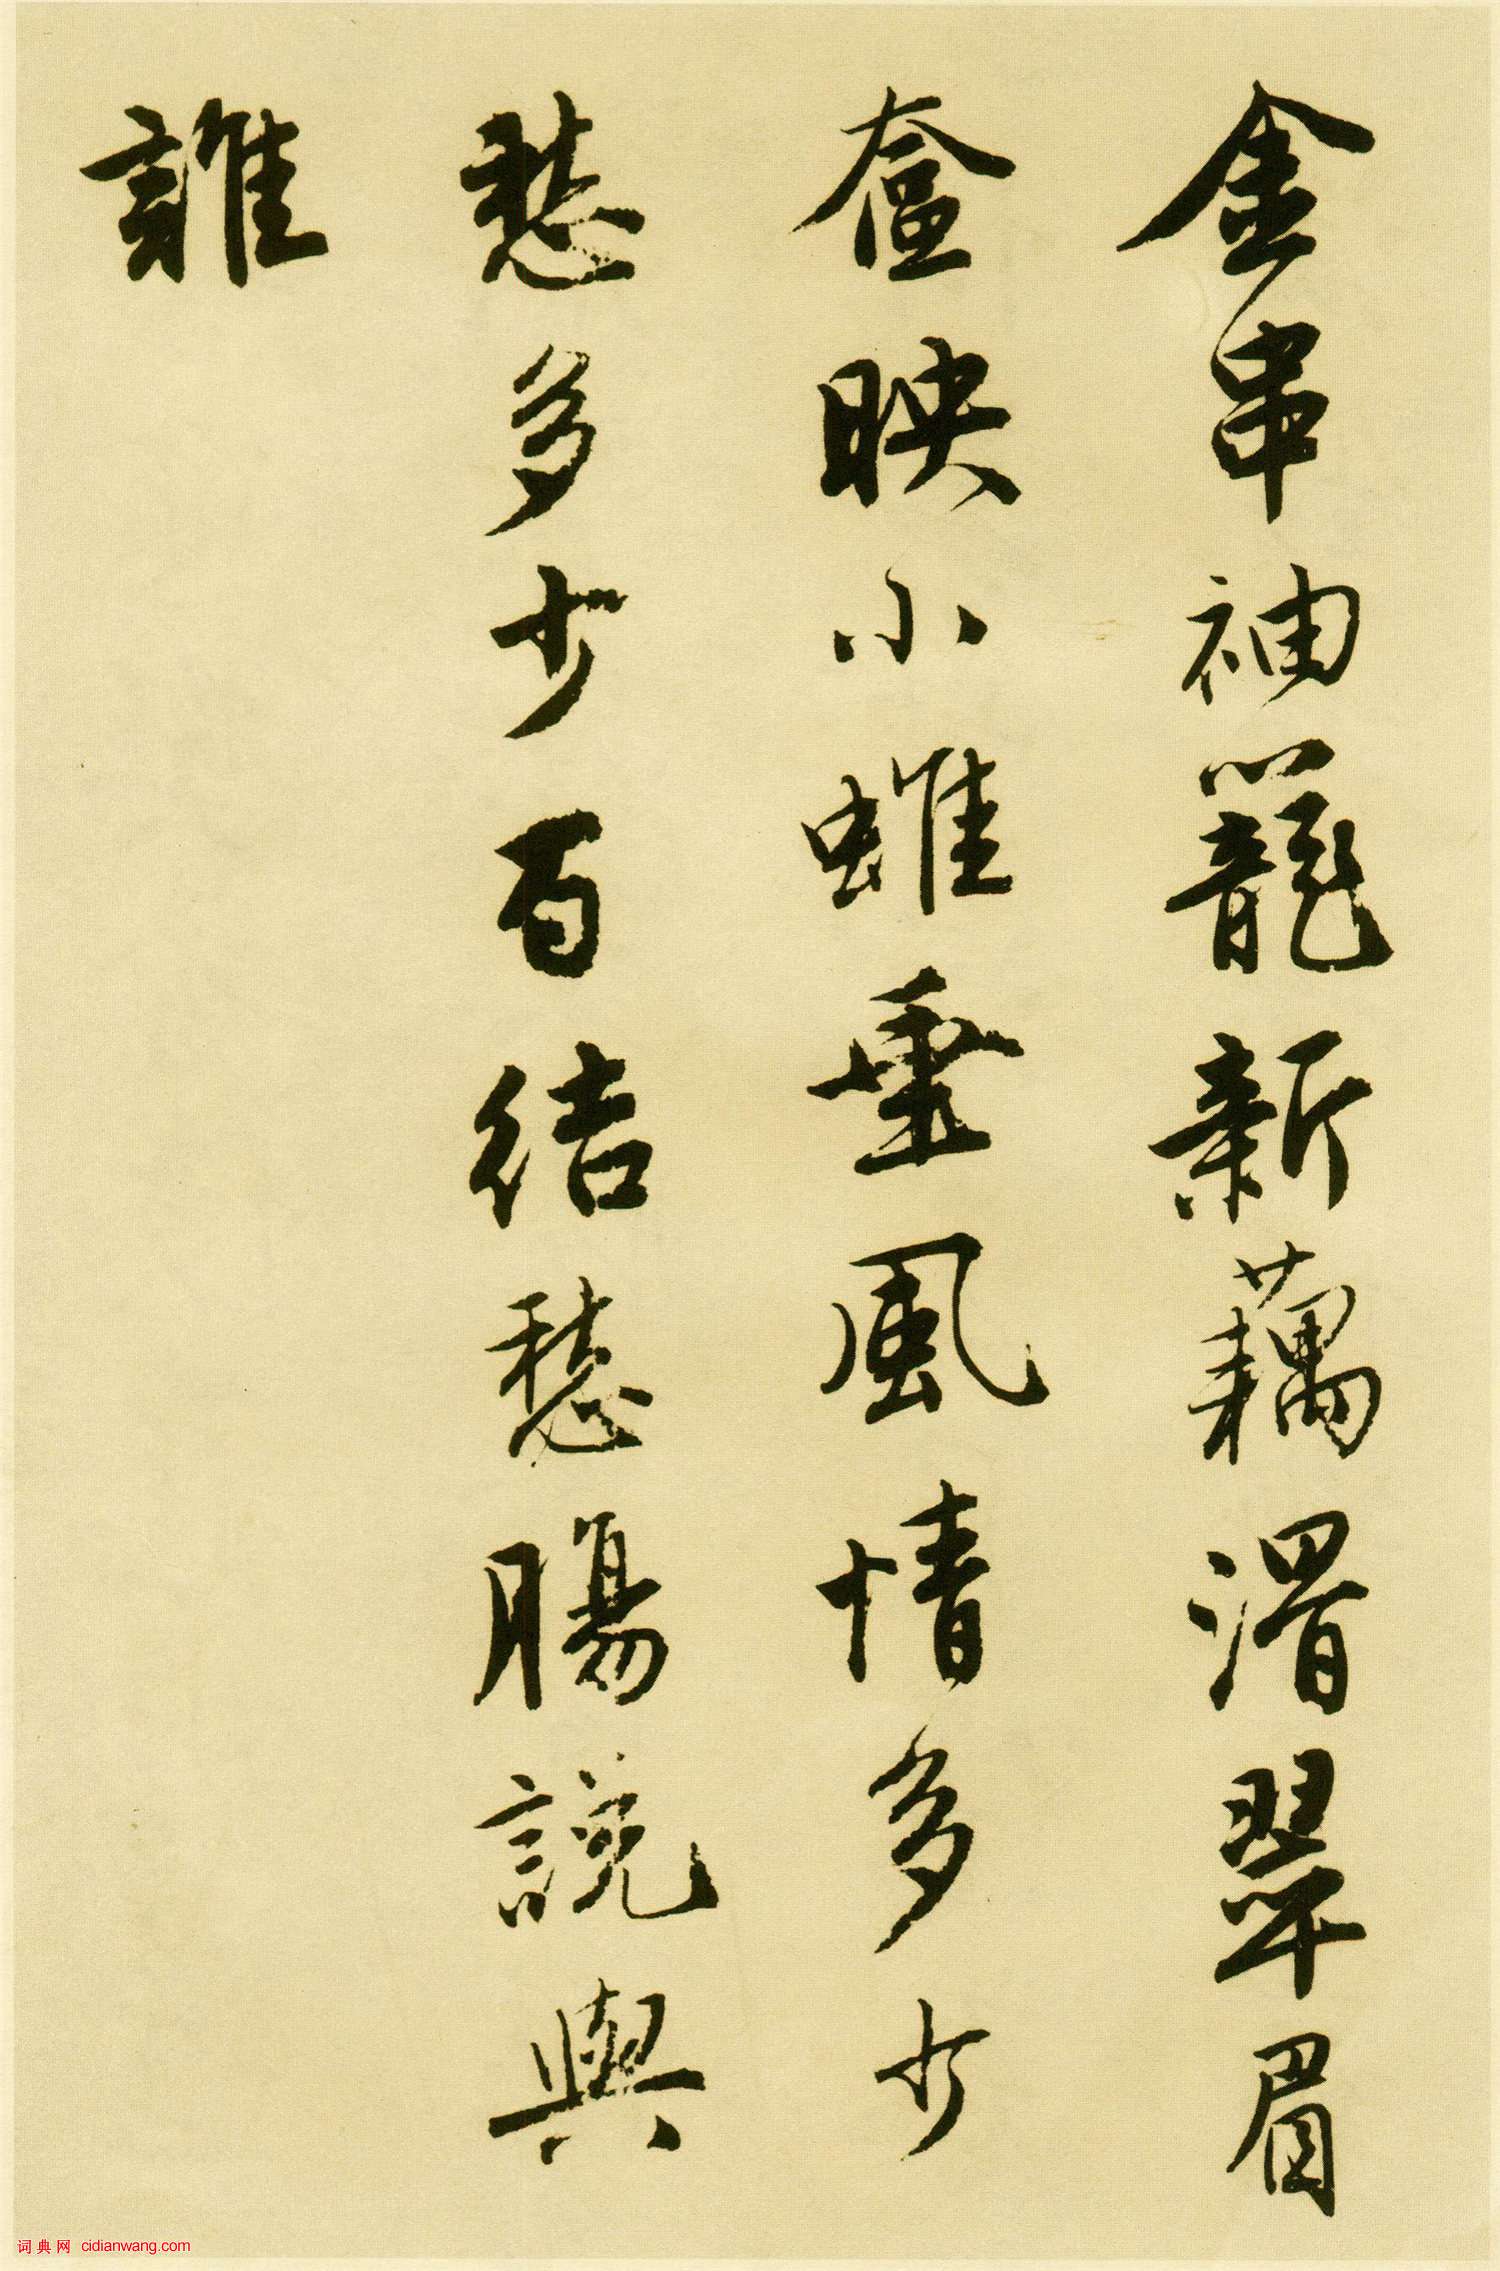 金串袖籠新藕滑翠眉
奩映小蛾垂風情多少
愁多少百結愁腸說與
誰
词典网 cidianwang.com